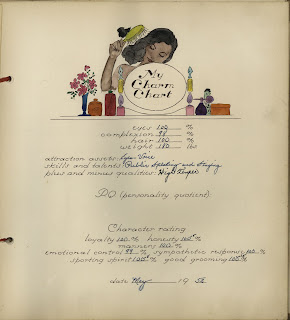 My
Charm
Chart
eyes 100 %
complexion 98 %
hair 100 %
weight 110 lbs
attraction assets: Eyes - Voice
skills and talents: Public Speaking and Singing
plus and minus qualities: High Temper
PQ (personality quotient)
Character rating
loyalty 100 % honesty 100 %
manners 100 %
emotional control 99 % sympathetic response 100 %
sporting spirit 100 % good grooming 100 %
date May 19 52